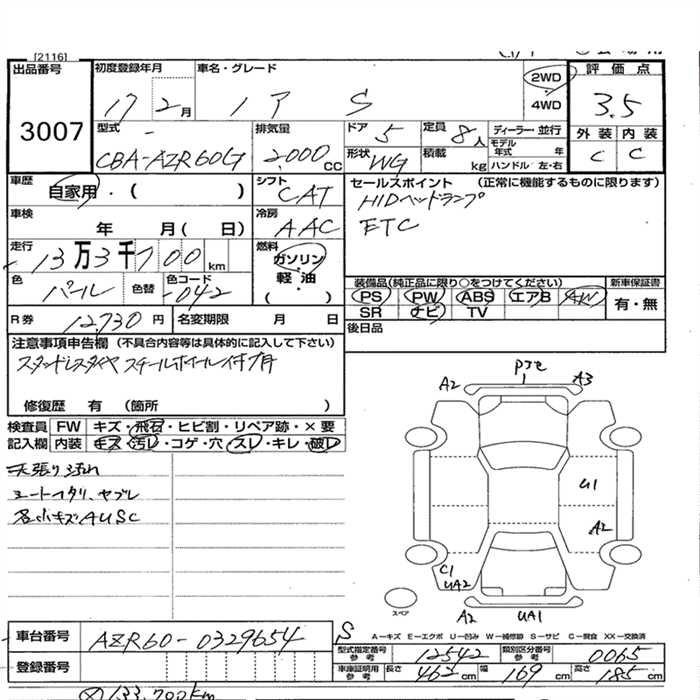 [2116]
出品番号
3007
初度登録年月
17 2月
車名・グレード
イプ S
2WD
4WD
評価点
3.5
外装 内装
C C
型式
CBA-AZR60G
排気量
2000 CC
ドア 5
形状 WG
定員 8人
積載 kg
ディーラー・並行
モデル年式 年
ハンドル/左・右
車歴
自家用・( )
シフト
CAT
車検
年 月(日)
冷房
AAC
走行
13万3千700km
燃料
ガソリン・軽油・( )
色
パール
色替
色コード
042
R券 12,730円
名変期限 月 日
セールスポイント (正常に機能するものに限ります)
HIDヘッドランプ
ETC
装備品(純正品に限り○をつけてください)
PS PW ABS エアB AW
SR ナビ TV
新車保証書
有・無
後日品
注意事項申告欄 (不具合内容等は具体的に記入して下さい)
スタッドレスタイヤ スチールホイール付
修復歴 有 (箇所 )
検査員記入欄
FW キズ・飛石・ヒビ割・リペア跡・×要
内装 キズ・汚レ・コゲ・穴・スレ・キレ・破レ
天張り汚れ
シートヘタリ、ヤブレ
各小キズAUSC
A2
A3
U1
A2
C1
UA2
A2
UA1
スペア
A-キズ E-エクボ U-凹み W-補修跡 S-サビ C-腐食 XX-交換済
車台番号
AZR60-0329654
S
登録番号
型式指定番号参考 12542
類別区分番号参考 0065
車庫証明用参考 長さ 462cm 幅 169cm 高さ 185cm
133,700km